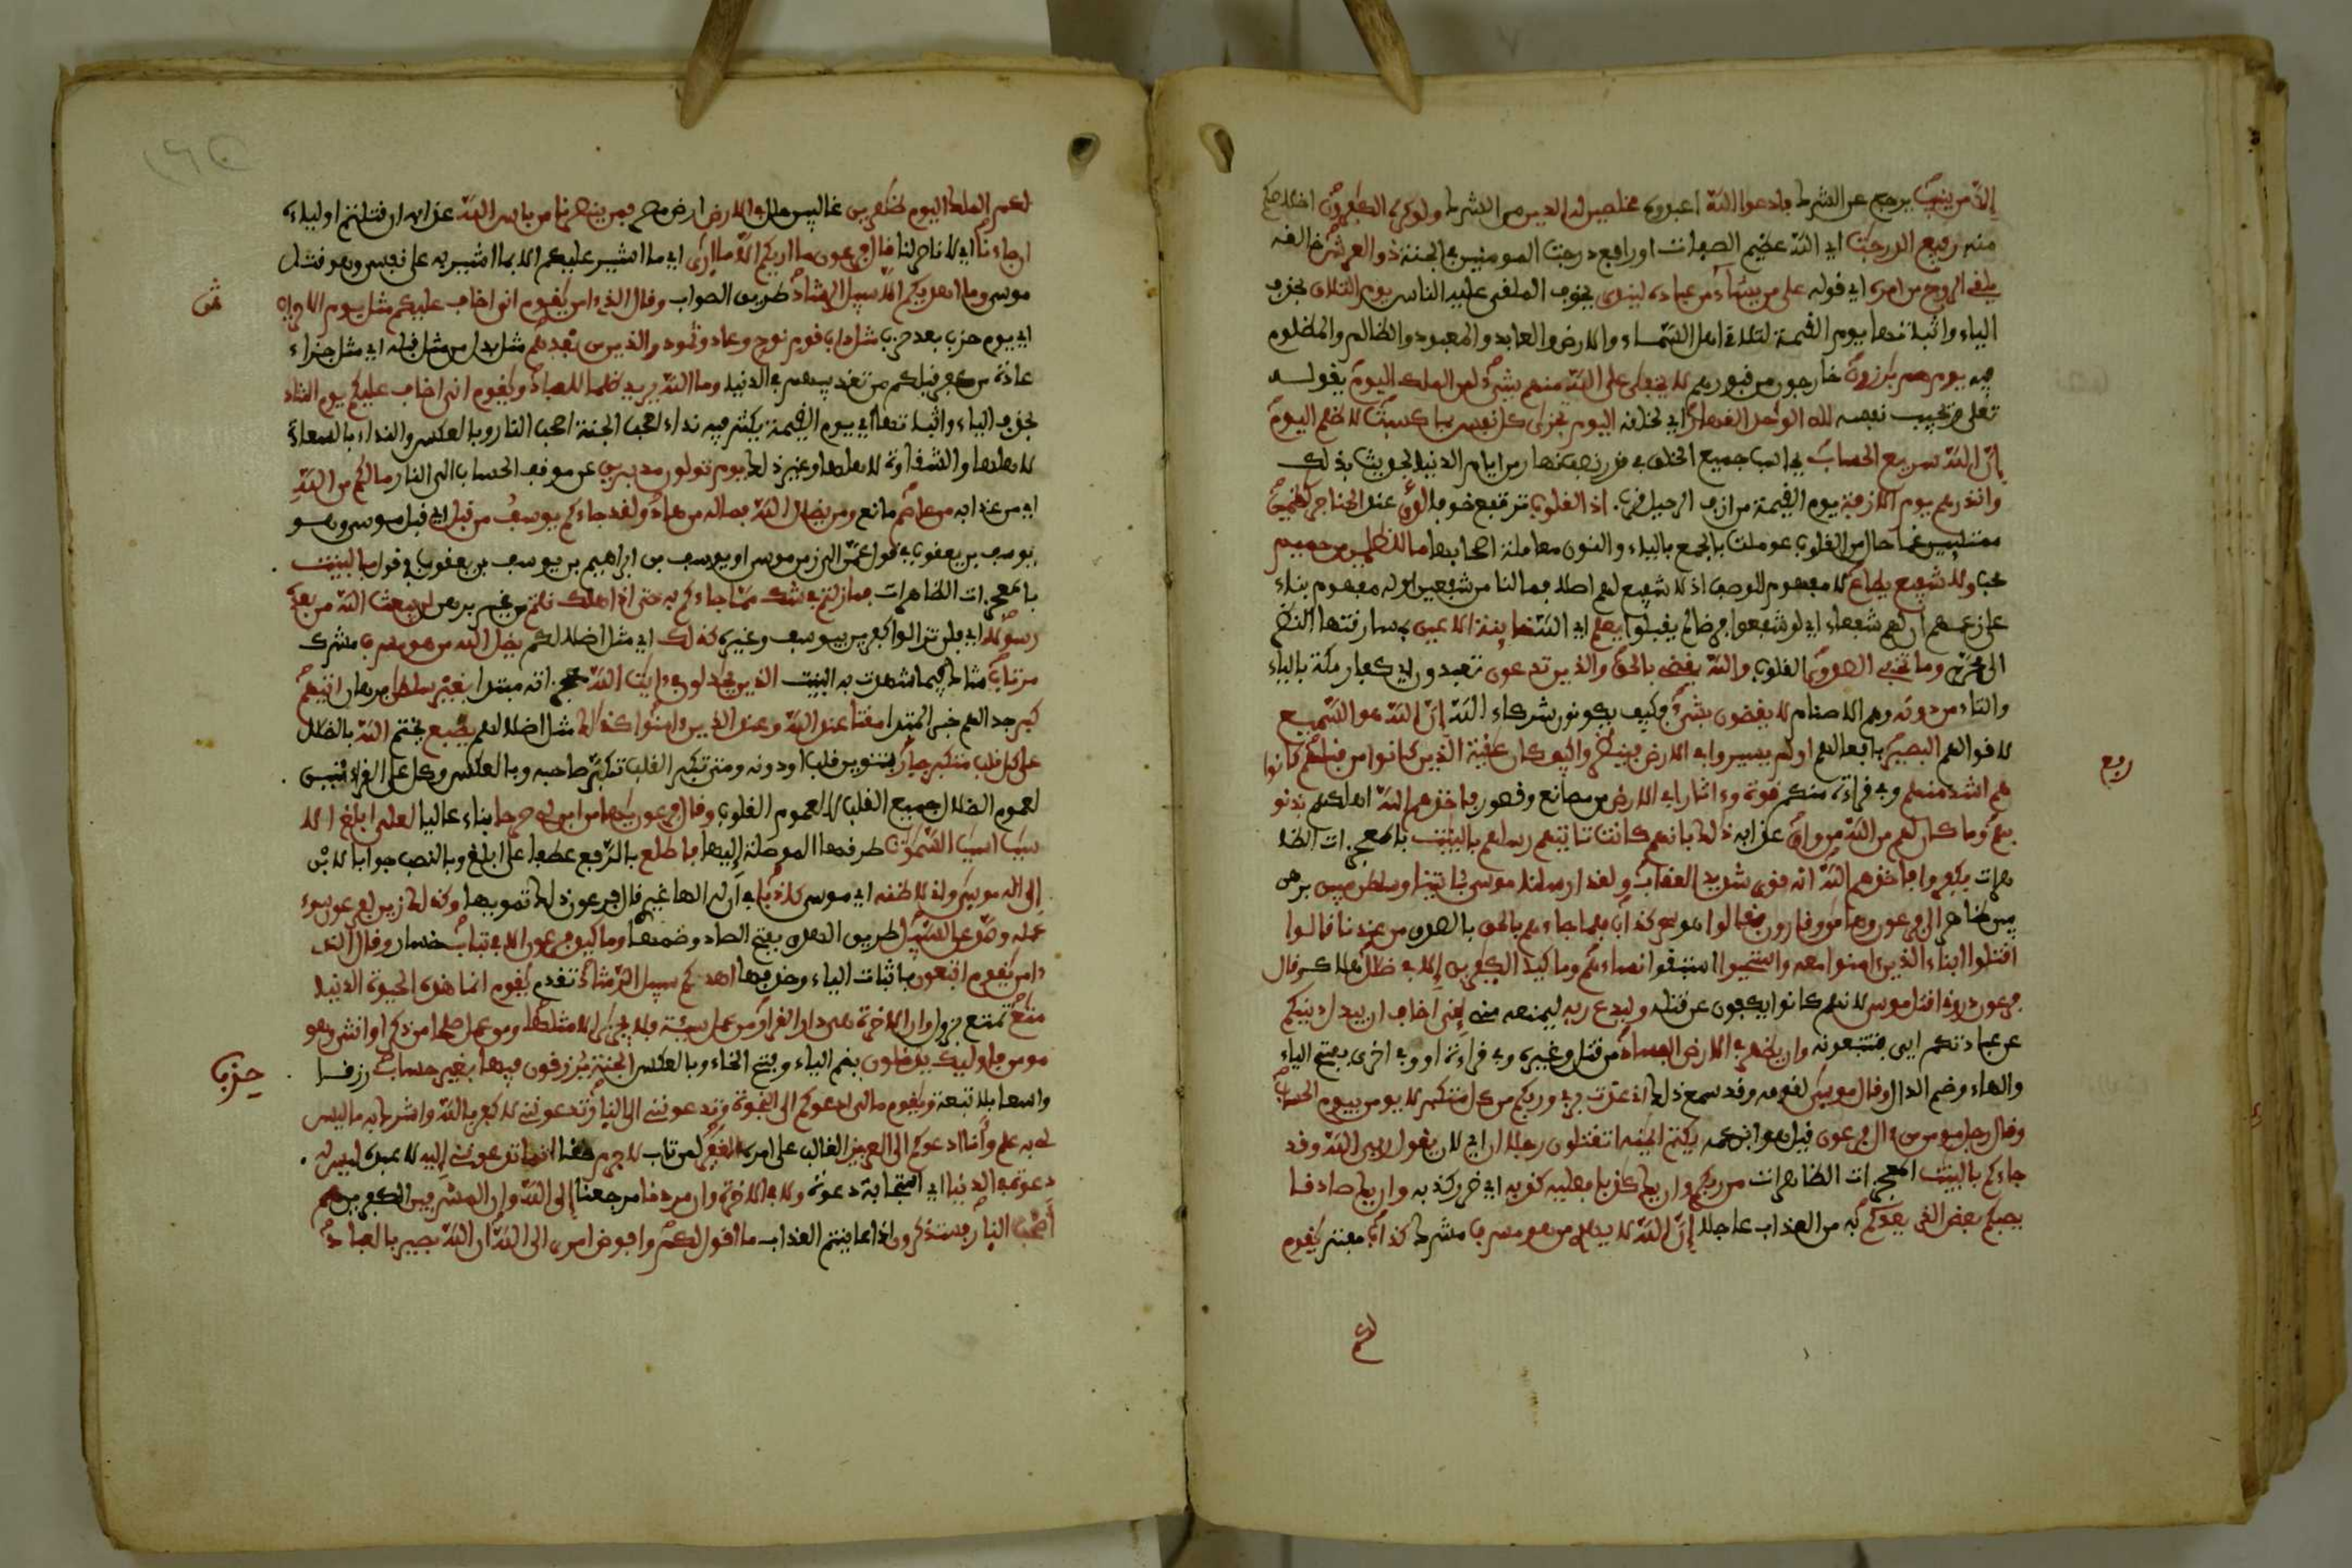 إلا من ينيب يرجع عن الشرك فادعوا الله اعبدوه مخلصين له الدين من الشرك ولو كره الكفرون اخلاصكم
منه رفيع الدرجت اي الله عظيم الصفات او رافع درجت المومنين في الجنة ذو العرش خالفه
يلقي الروح من امره اي قوله على من يشاء من عباده لينذر يخوف الملقى عليه الناس يوم التلاق بحذف
الياء واثباتها يوم القيمة لتلاقي اهل السماء والارض والعابد والمعبود والظالم والمظلوم
فيه يوم هم برزون خارجون من قبورهم لا يخفى على الله منهم شيء لمن الملك اليوم يقوله
تعلى ويجيب نفسه لله الواحد القهار اي لخلقه اليوم تجزى كل نفس بما كسبت لا ظلم اليوم
إن الله سريع الحساب يحاسب جميع الخلق في قدر نصف نهار من ايام الدنيا لحديث بذلك
وانذرهم يوم الازفة يوم القيمة من ازف الرحيل قرب اذ القلوب ترتفع خوفا لدى عند الحناجر كظمين
ممتلين غما حال من القلوب عوملت بالجمع بالياء والنون معاملة اصحابها ما للظلمين من حميم
محب ولا شفيع يطاع لا مفهوم للوصف اذ لا شفيع لهم اصلا فما لنا من شفعين او له مفهوم بناء
على زعمهم ان لهم شفعاء اي لو شفعوا فرضا لم يقبلوا يعلم اي الله خاينة الاعين بمسارقتها النظر
الى محرم وما تخفي الصدور القلوب والله يقضي بالحق والذين تدعون تعبدون اي كفار مكة بالياء
والتاء من دونه وهم الاصنام لا يقضون بشيء فكيف يكونون شركاء لله إن الله هو السميع
لاقوالهم البصير بافعالهم اولم يسيروا في الارض فينظروا كيف كان عقبة الذين كانوا من قبلهم كانوا
هم اشد منهم وفي قراءة منكم قوة وءاثارا في الارض من مصانع وقصور فاخذهم الله اهلكهم بذنو
بهم وما كان لهم من الله من واق عذابه ذلك بانهم كانت تاتيهم رسلهم بالبينت بالمعجزات الظا
هرات فكفروا فاخذهم الله انه قوي شديد العقاب ولقد ارسلنا موسى بئايتنا وسلطن مبين برهن
بين ظاهر الى فرعون وهامن وقارون فقالوا هو سحر كذاب فلما جاءهم بالحق بالصدق من عندنا قالوا
اقتلوا ابناء الذين ءامنوا معه واستحيوا استبقوا نساءهم وما كيد الكفرين إلا في ضلل هلاك وقال
فرعون ذروني اقتل موسى لانهم كانوا يكفون عن قتله وليدع ربه ليمنعه مني إني اخاف ان يبدل دينكم
عن عبادتكم ايي فتتبعونه وان يظهر في الارض الفساد من قتل وغيره وفي قراءة او وفي اخرى بفتح الياء
والهاء وضم الدال وقال موسى لقومه وقد سمع ذلك اني عذت بربي وربكم من كل متكبر لا يومن بيوم الحساب
وقال رجل مومن من ءال فرعون قيل هو ابن عمه يكتم ايمنه اتقتلون رجلا ان اي لان يقول ربي الله وقد
جاءكم بالبينت المعجزات الظاهرات من ربكم وان يك كذبا فعليه كذبه اي ضرر كذبه وان يك صادقا
يصبكم بعض الذي يعدكم به من العذاب عاجلا إن الله لا يهدي من هو مسرف مشرك كذاب مفتر يقوم
ربع
لكم الملك اليوم ظهرين غالبين حال في الارض ارض مصر فمن ينصرنا من باس الله عذابه ان قتلتم اولياءه
ان جاءنا اي لا ناصر لنا قال فرعون ما اريكم الا ما ارى اي ما اشير عليكم الا بما اشير به على نفسي وهو قتل
موسى وما اهديكم الا سبيل الرشاد طريق الصواب وقال الذي ءامن يقوم اني اخاف عليكم مثل يوم الاحزاب
اي يوم حزب بعد حزب مثل داب قوم نوح وعاد وثمود والذين من بعدهم مثل بدل من مثل قبله اي مثل جزاء
عادة من كفر قبلكم من تعذيبهم في الدنيا وما الله يريد ظلما للعباد ويقوم اني اخاف عليكم يوم التناد
بحذف الياء واثباتها اي يوم القيمة يكثر فيه نداء اصحب الجنة اصحب النار وبالعكس والنداء بالسعادة
لاهلها والشقاوة لاهلها وغير ذلك يوم تولون مدبرين عن موقف الحساب الى النار ما لكم من الله
اي من عذابه من عاصم مانع ومن يضلل الله فما له من هاد ولقد جاءكم يوسف من قبل اي قبل موسى وهو
يوسف بن يعقوب في قول عمر الى زمن موسى او يوسف بن ابراهيم بن يوسف بن يعقوب في قول بالبينت
بالمعجزات الظاهرات فما زلتم في شك مما جاءكم به حتى اذا هلك قلتم من غير برهن لن يبعث الله من بعده
رسولا اي فلن تزالوا كفرين بيوسف وغيره كذلك اي مثل اضلالكم يضل الله من هو مسرف مشرك
مرتاب شاك فيما شهدت به البينت الذين يجدلون في ءايت الله معجزاته مبتدا بغير سلطن برهان اتيهم
كبر جدالهم خبر المبتدا مقتا عند الله وعند الذين ءامنوا كذلك مثل اضلالهم يطبع يختم الله بالضلال
على كل قلب متكبر جبار بتنوين قلب او دونه ومتى تكبر القلب تكبر صاحبه وبالعكس وكل على القراءتين
لعموم الضلال جميع القلب لا لعموم القلوب وقال فرعون يهامن ابن لي صرحا بناء عاليا لعلي ابلغ الا
سبب اسبب السموت طرقها الموصلة إليها فاطلع بالرفع عطفا على ابلغ وبالنصب جوابا لابن
إلى اله موسى واني لاظنه اي موسى كاذبا في ان له الها غيري قال فرعون ذلك تمويها وكذلك زين لفرعون سوء
عمله وصد عن السبيل طريق الهدى بفتح الصاد وضمها وما كيد فرعون الا في تباب خسار وقال الذي
ءامن يقوم اتبعون باثبات الياء وحذفها اهدكم سبيل الرشاد تقدم يقوم انما هذه الحيوة الدنيا
متع تمتع يزول وان الاخرة هي دار القرار من عمل سيئة فلا يجزى الا مثلها ومن عمل صلحا من ذكر او انثى وهو
مومن فاوليك يدخلون بضم الياء وفتح الخاء وبالعكس الجنة يرزقون فيها بغير حساب رزقا
واسعا بلا تبعة ويقوم ما لي ادعوكم الى النجوة وتدعونني الى النار تدعونني لاكفر بالله واشرك به ما ليس
لي به علم وانا ادعوكم الى العزيز الغالب على امره الغفر لمن تاب لا جرم حقا انما تدعونني إليه لاعبده ليس له
دعوة في الدنيا اي استجابة دعوة ولا في الاخرة وان مردنا مرجعنا إلى الله وان المسرفين الكفرين هم
أصحب النار فستذكرون اذا عاينتم العذاب ما اقول لكم وافوض امري الى الله ان الله بصير بالعباد
ثمن
حزب